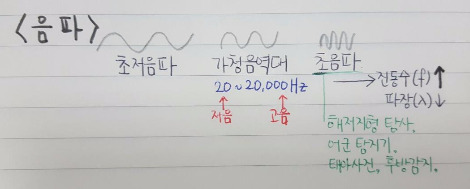 <음파>
초저음파 가청음역대 초음파
20~20,000Hz → 진동수(f)↑
↑ ↑ 파장(λ)↓
저음 고음
해저지형 탐사.
어군 탐지기.
태아사진, 후방감지.